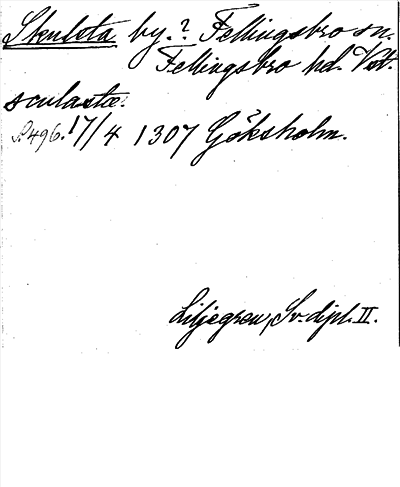 Skulsta by.? Fellingsbro sn.
Fellingsbro hd. Vstm.
sculastæ.
S. 496. 17/4 1307 Göksholm.
Liljegren, Sv. dipl. II.